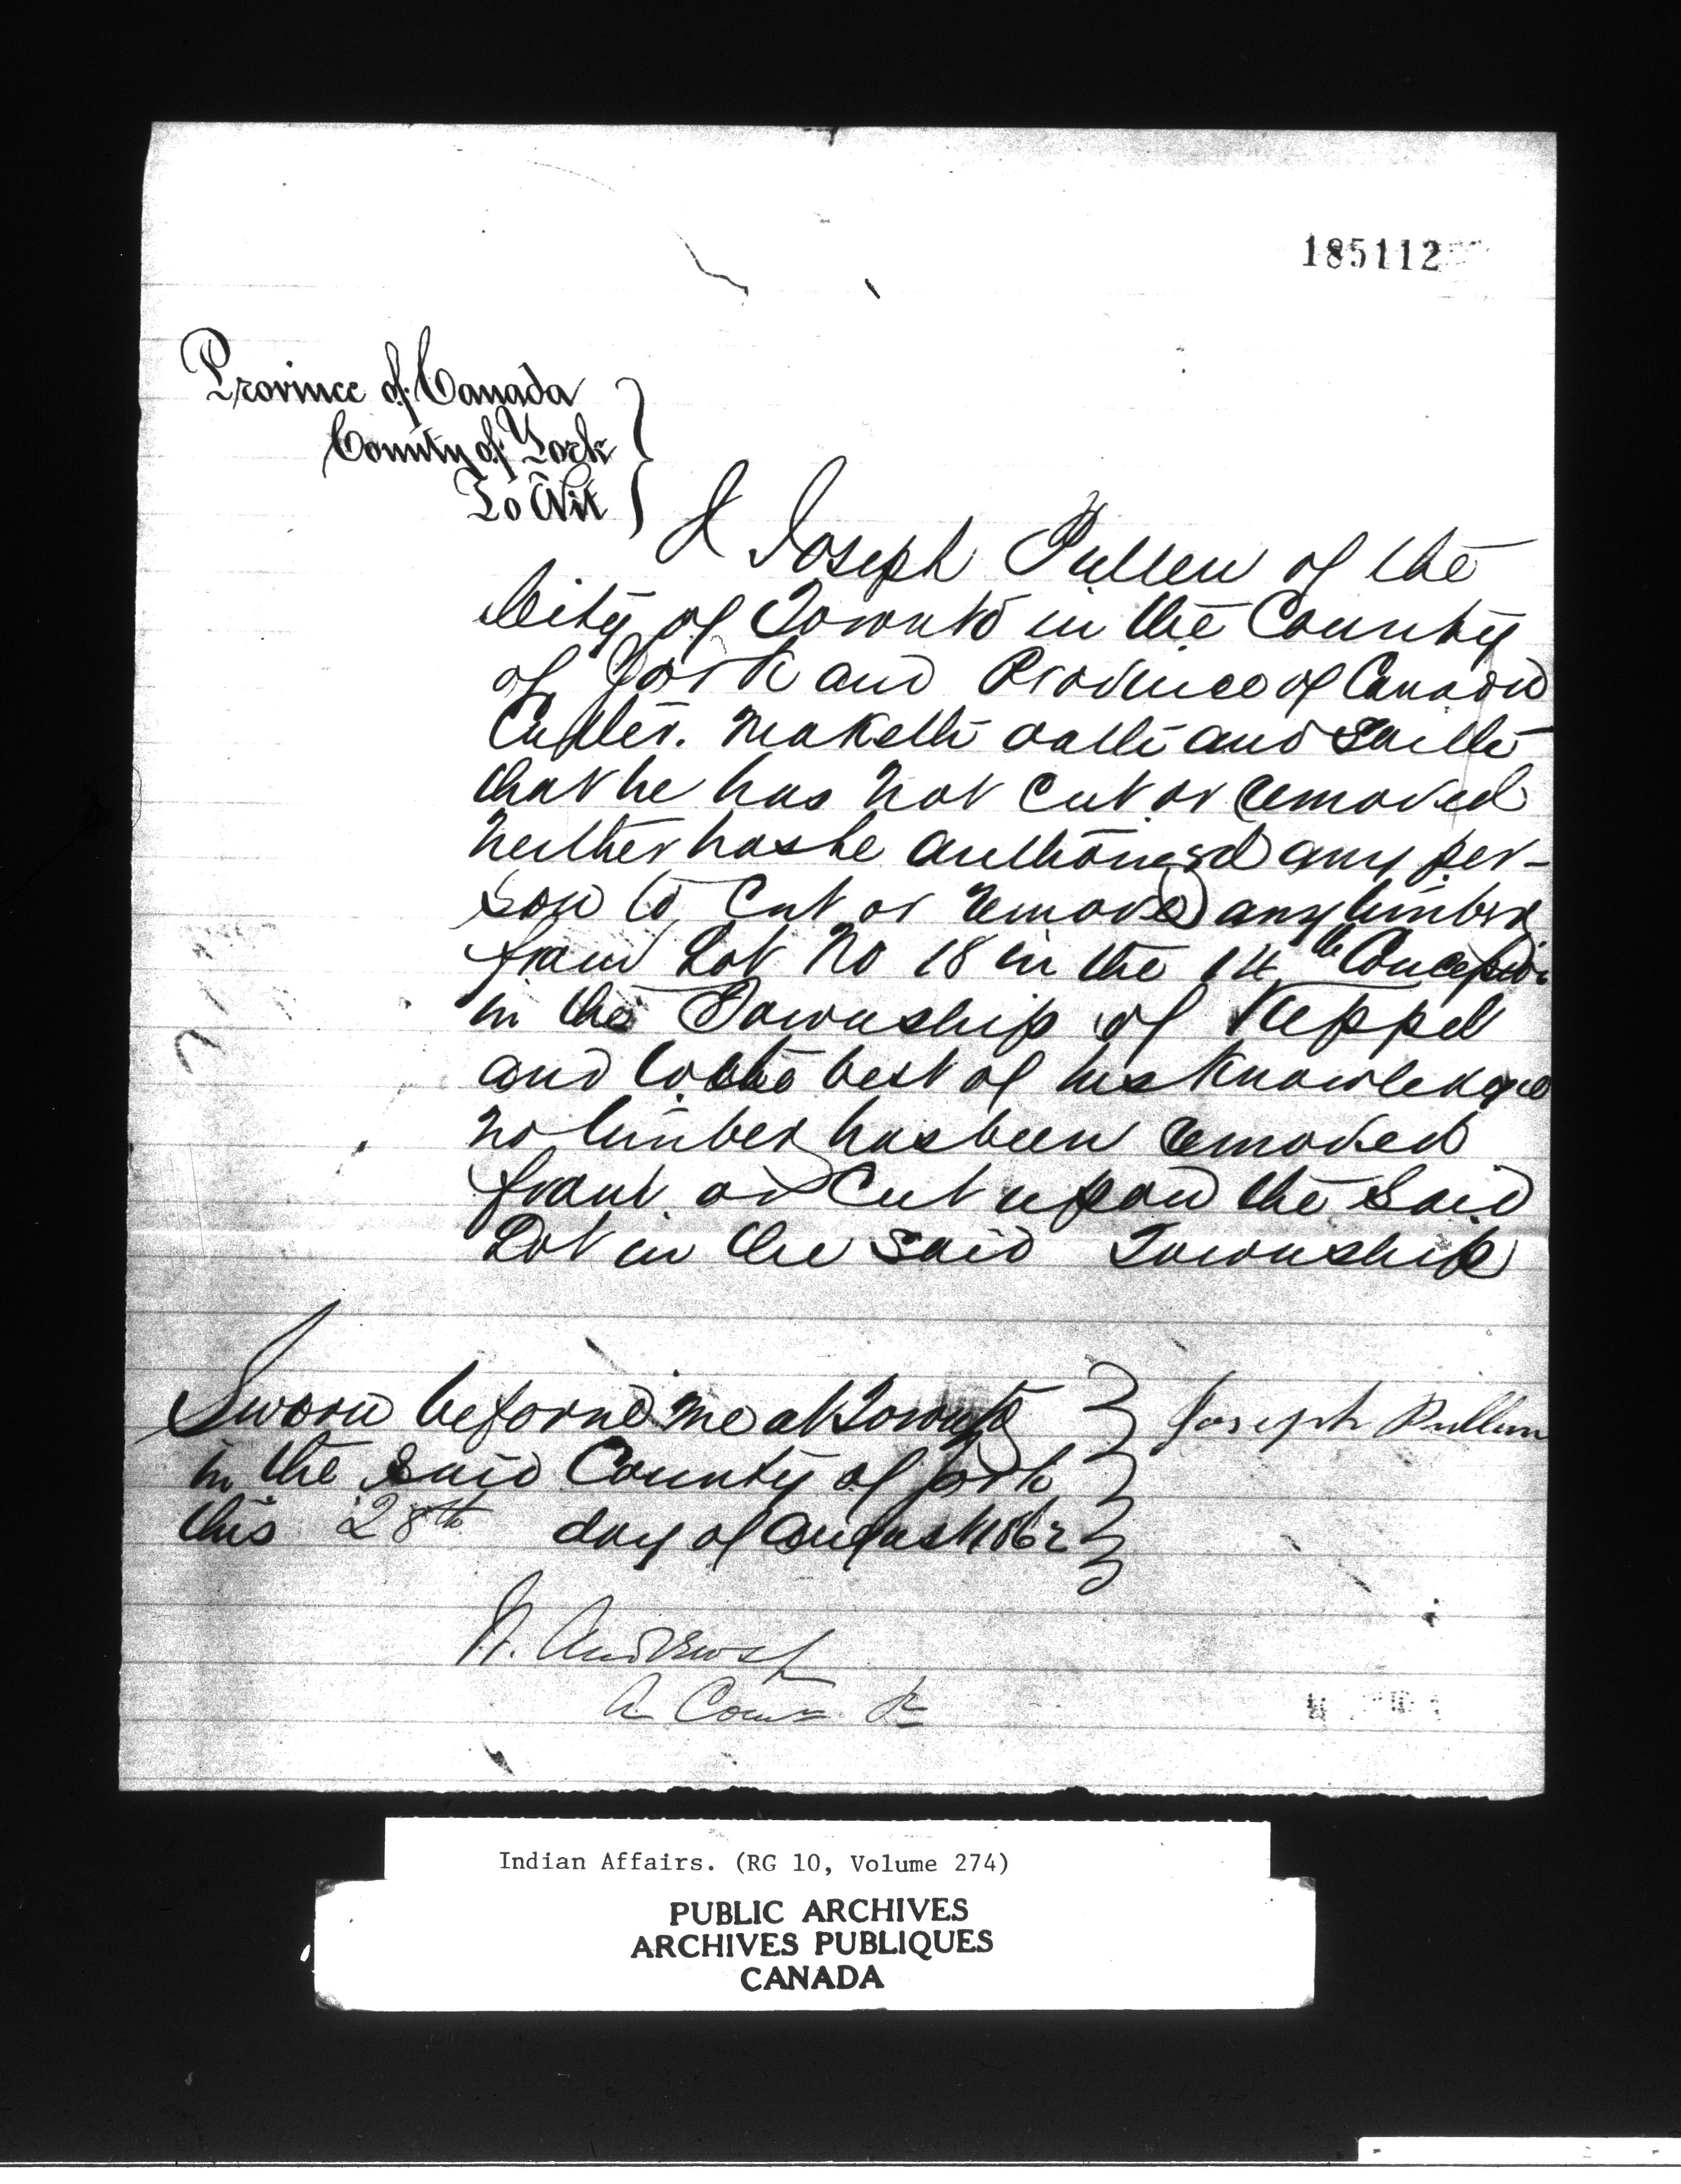 185112
Province of Canada
County of York
To Wit
I Joseph Pullen of the
City of Toronto in the County
of York and Province of Canada
Cutler. Maketh oath and Saith
that he has not cut or removed
neither has he authorised any per-
son to cut or remove any timber
from Lot No 18 in the 14th Concession
in the Township of Keppel
and to the best of his Knowledge
no timber has been removed
from or Cut upon the Said
Lot in the said Township
Sworn before me at Toronto
in the Said County of York
this 28th day of August 1862
Joseph Pullen
W. Andrews
A Comr
Indian Affairs. (RG 10, Volume 274)
PUBLIC ARCHIVES
ARCHIVES PUBLIQUES
CANADA